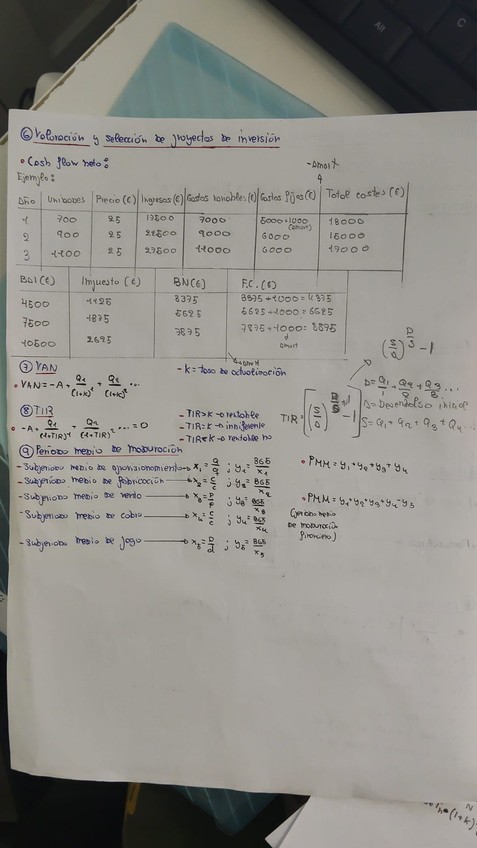 ⑥ Valoración y selección de proyectos de inversión
• Cash flow neto:
Ejemplo:
-Amort
Año Unidades Precio(€) Ingresos(€) Gastos variables(€) Gastos fijos(€) Total costes(€)
1 700 25 17500 7000 5000+1000 (Amort) 18000
2 900 25 22500 9000 6000 15000
3 1100 25 27500 11000 6000 17000
BAI(€) Impuesto (€) BN(€) F.C.(€)
4500 1125 3375 3375+1000=4375
7500 1875 5625 5625+1000=6625
10500 2625 7875 7875+1000=8875
Amort
⑦ VAN
- K = tasa de actualización
• VAN=-A+ Q1/(1+K)¹ + Q2/(1+K)² ...
(S/D)^(D/S) -1
⑧ TIR
• -A+ Q1/(1+TIR)¹ + Q2/(1+TIR)² ... =0
- TIR>K → rentable
- TIR=K → indiferente
- TIR<K → rentable no
TIR=[(S/D) -1]
D= Q1/1 + Q2/2 + Q3/3 ...
D=Desembolso inicial
S=Q1+Q2+Q3+Q4...
⑨ Periodo medio de maduración
-Subperiodo medio de aprovisionamiento → x1= ; y1= 365/x1
-Subperiodo medio de fabricación → x2= ; y2= 365/x2
-Subperiodo medio de venta → x3= ; y3= 365/x3
-Subperiodo medio de cobro → x4= ; y4= 365/x4
-Subperiodo medio de pago → x5= ; y5= 365/x5
• PMM=y1+y2+y3+y4
• PMM=y1+y2+y3+y4-y5
(periodo medio
de maduración
financiero)
Alt
C
N
(1+K)